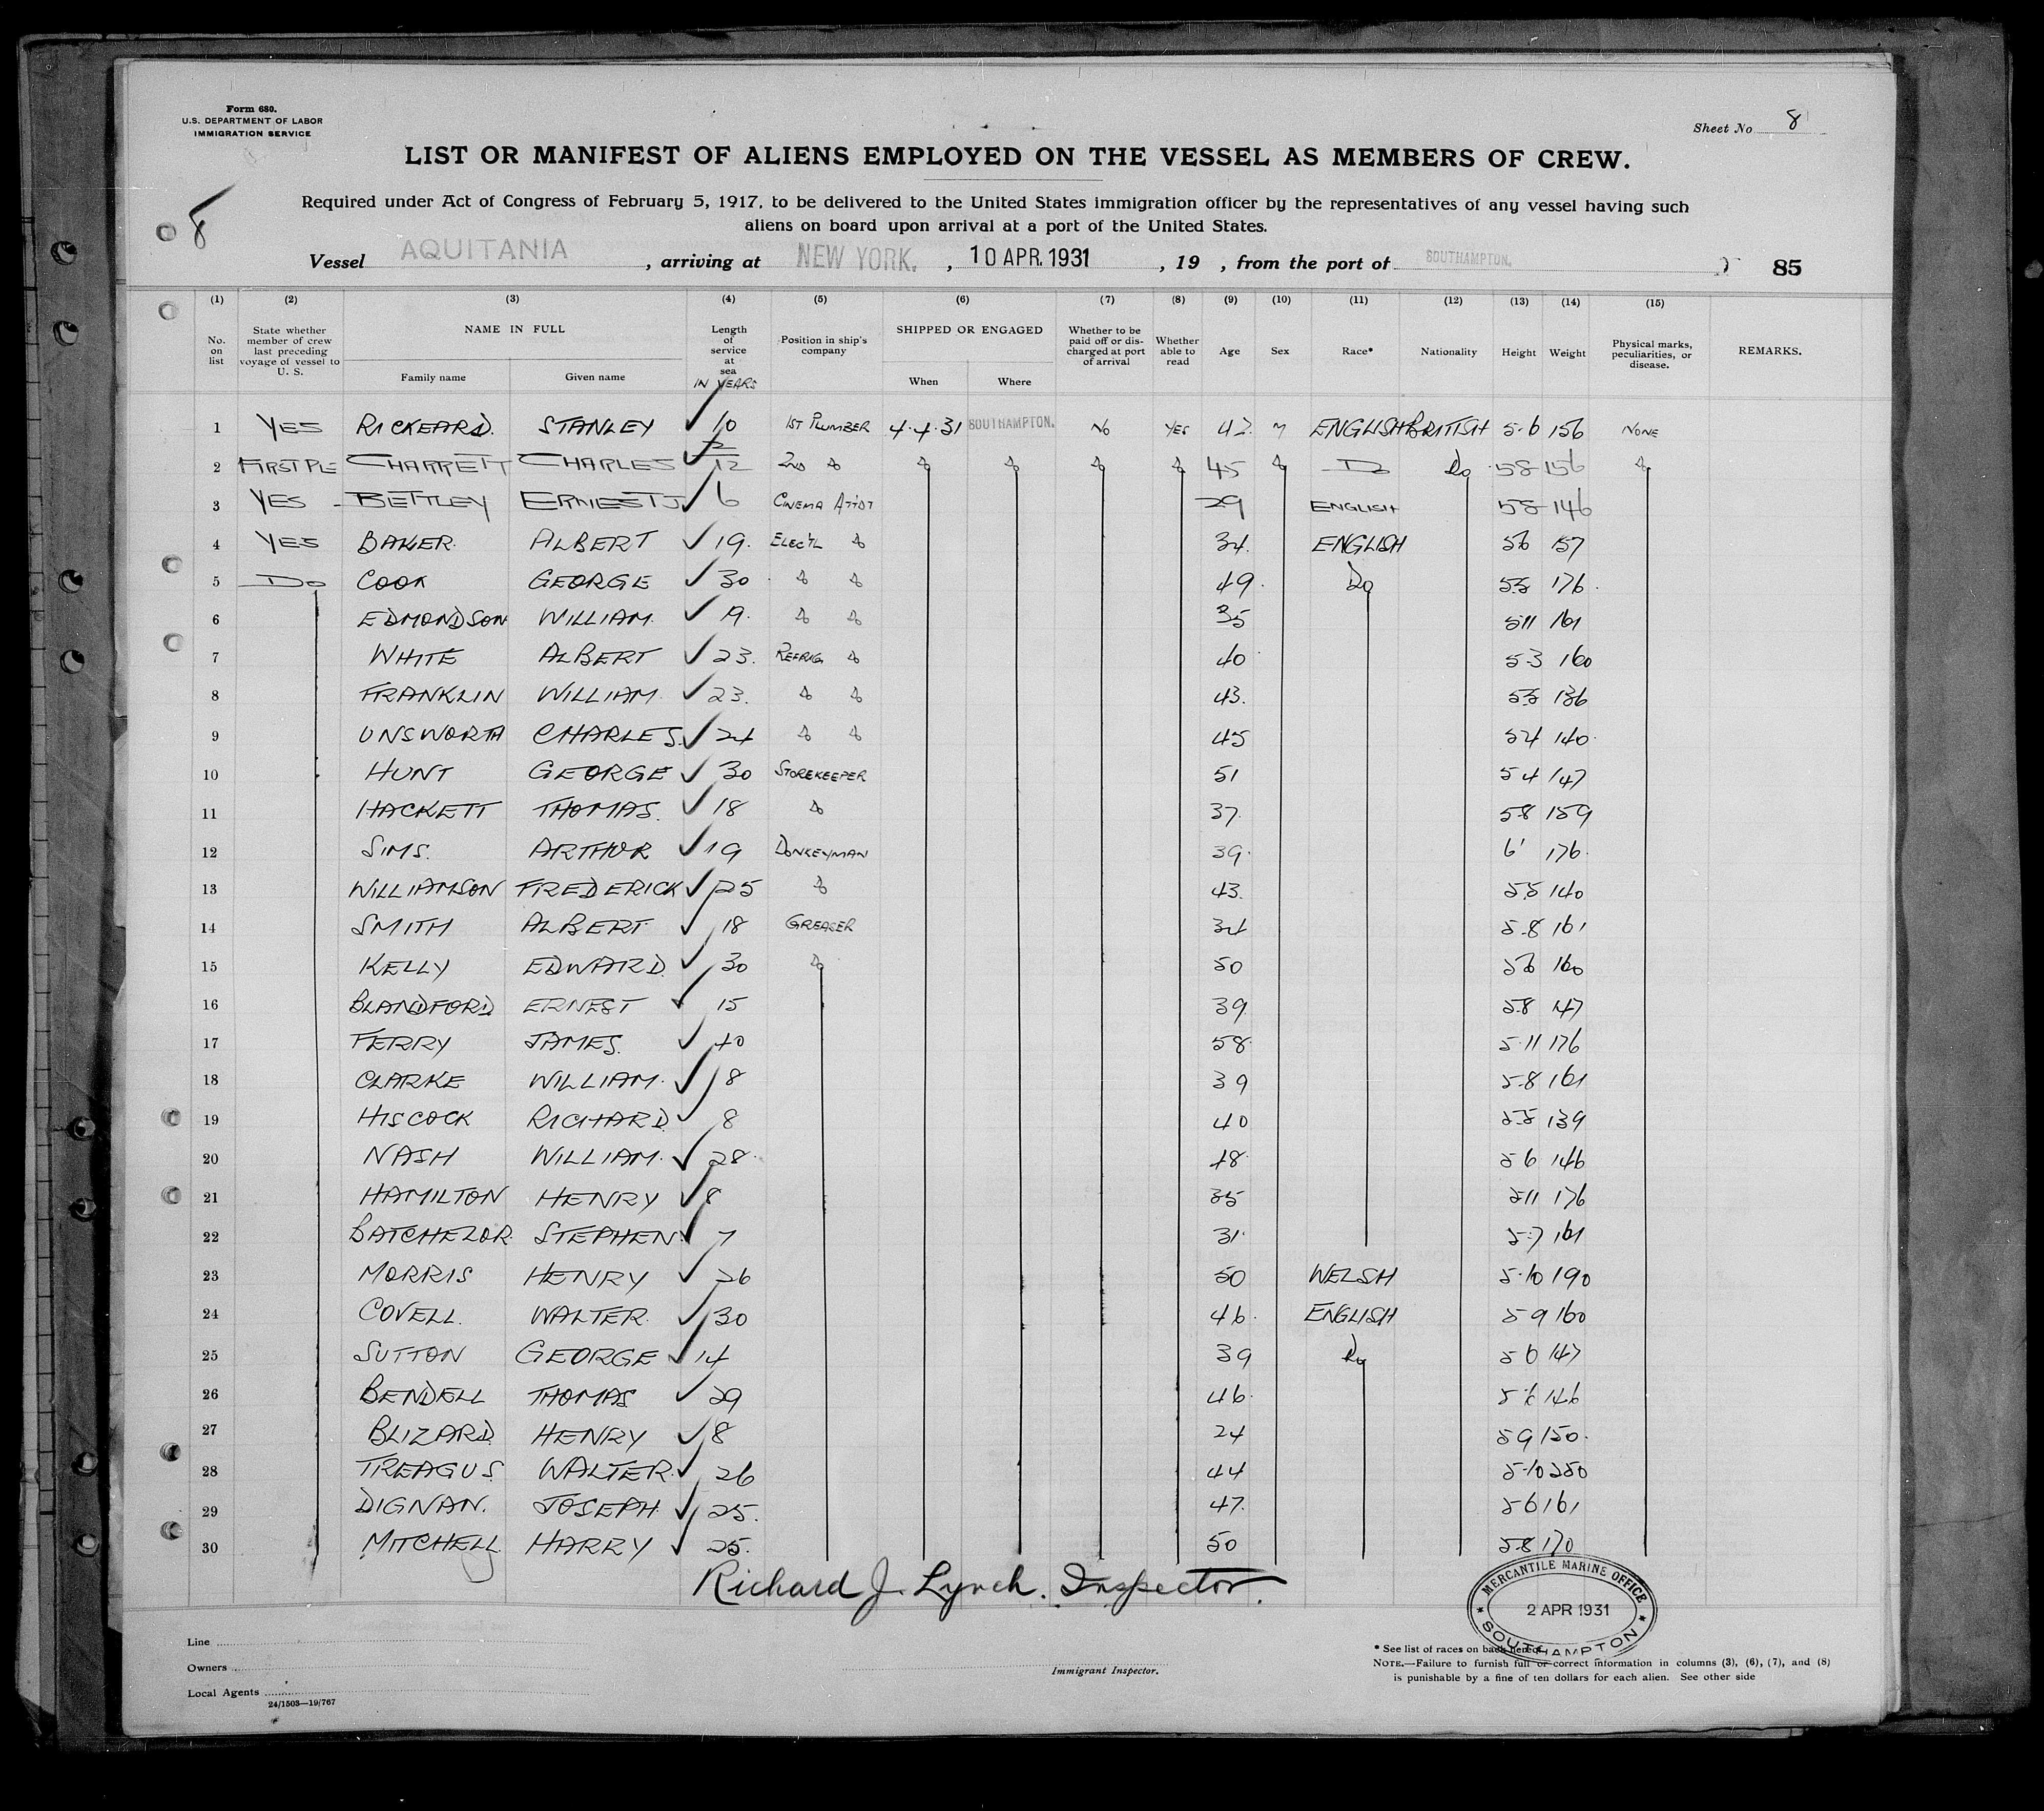 Form 680.
U.S. DEPARTMENT OF LABOR
IMMIGRATION SERVICE
Sheet No 8
LIST OR MANIFEST OF ALIENS EMPLOYED ON THE VESSEL AS MEMBERS OF CREW.
Required under Act of Congress of February 5, 1917, to be delivered to the United States immigration officer by the representatives of any vessel having such
aliens on board upon arrival at a port of the United States.
8
Vessel AQUITANIA, arriving at NEW YORK., 10 APR. 1931, 19 , from the port of SOUTHAMPTON. 85
(1) (2) (3) (4) (5) (6) (7) (8) (9) (10) (11) (12) (13) (14) (15)
No. on list State whether member of crew last preceding voyage of vessel to U. S. NAME IN FULL Family name Given name Length of service at sea IN YEARS Position in ship's company SHIPPED OR ENGAGED When Where Whether to be paid off or discharged at port of arrival Whether able to read Age Sex Race* Nationality Height Weight Physical marks, peculiarities, or disease. REMARKS.
1 YES RICKEARD. STANLEY 10 1ST PLUMBER 4.4.31 SOUTHAMPTON. NO YES 42 M ENGLISH BRITISH 5.6 156 NONE
2 FIRST PLE CHARRETT CHARLES 12 2ND Do 45 Do Do 58 156
3 YES BETTLEY ERNEST J 6 CINEMA ATTDT 29 ENGLISH 58 146
4 YES BAKER ALBERT 19. ELEC'L 34. ENGLISH 56 157
5 Do COOK GEORGE 30 49. Do 55 176.
6 EDMONDSON WILLIAM. 19. 35 511 161
7 WHITE ALBERT 23. REFRIG 40 53 160
8 FRANKLIN WILLIAM 23. 43. 55 136
9 UNSWORTH CHARLES. 24 45 54 140
10 HUNT GEORGE 30 STOREKEEPER 51 54 147
11 HACKETT THOMAS. 18 37. 58 159
12 SIMS. ARTHUR 19 DONKEYMAN 39. 6' 176.
13 WILLIAMSON FREDERICK 25 43. 55 140
14 SMITH ALBERT 18 GREASER 34 5.8 161
15 KELLY EDWARD. 30 50 56 160
16 BLANDFORD ERNEST 15 39 58 147
17 FERRY JAMES. 40 58 5.11 176
18 CLARKE WILLIAM. 8 39 5.8 161
19 HISCOCK RICHARD 8 40 55 139
20 NASH WILLIAM. 28 48 56 146
21 HAMILTON HENRY 8 35 511 176
22 BATCHELOR STEPHEN 7 31. 5.7 161
23 MORRIS HENRY 26 50 WELSH 5.10 190
24 COVELL. WALTER 30 46. ENGLISH 59 160
25 SUTTON GEORGE 14 39 Do 56 147
26 BENDELL THOMAS 29 46. 56 146
27 BLIZARD HENRY 8 24 59 150.
28 TREAGUS. WALTER 26 44 5.10 250
29 DIGNAN. JOSEPH 25. 47. 56 161
30 MITCHELL HARRY 25. 50 58 170
Richard J. Lynch. Inspector.
MERCANTILE MARINE OFFICE
2 APR 1931
SOUTHAMPTON
Line
Owners
Local Agents
24/1503—19/767
Immigrant Inspector.
* See list of races on back hereof.
NOTE.—Failure to furnish full or correct information in columns (3), (6), (7), and (8)
is punishable by a fine of ten dollars for each alien. See other side